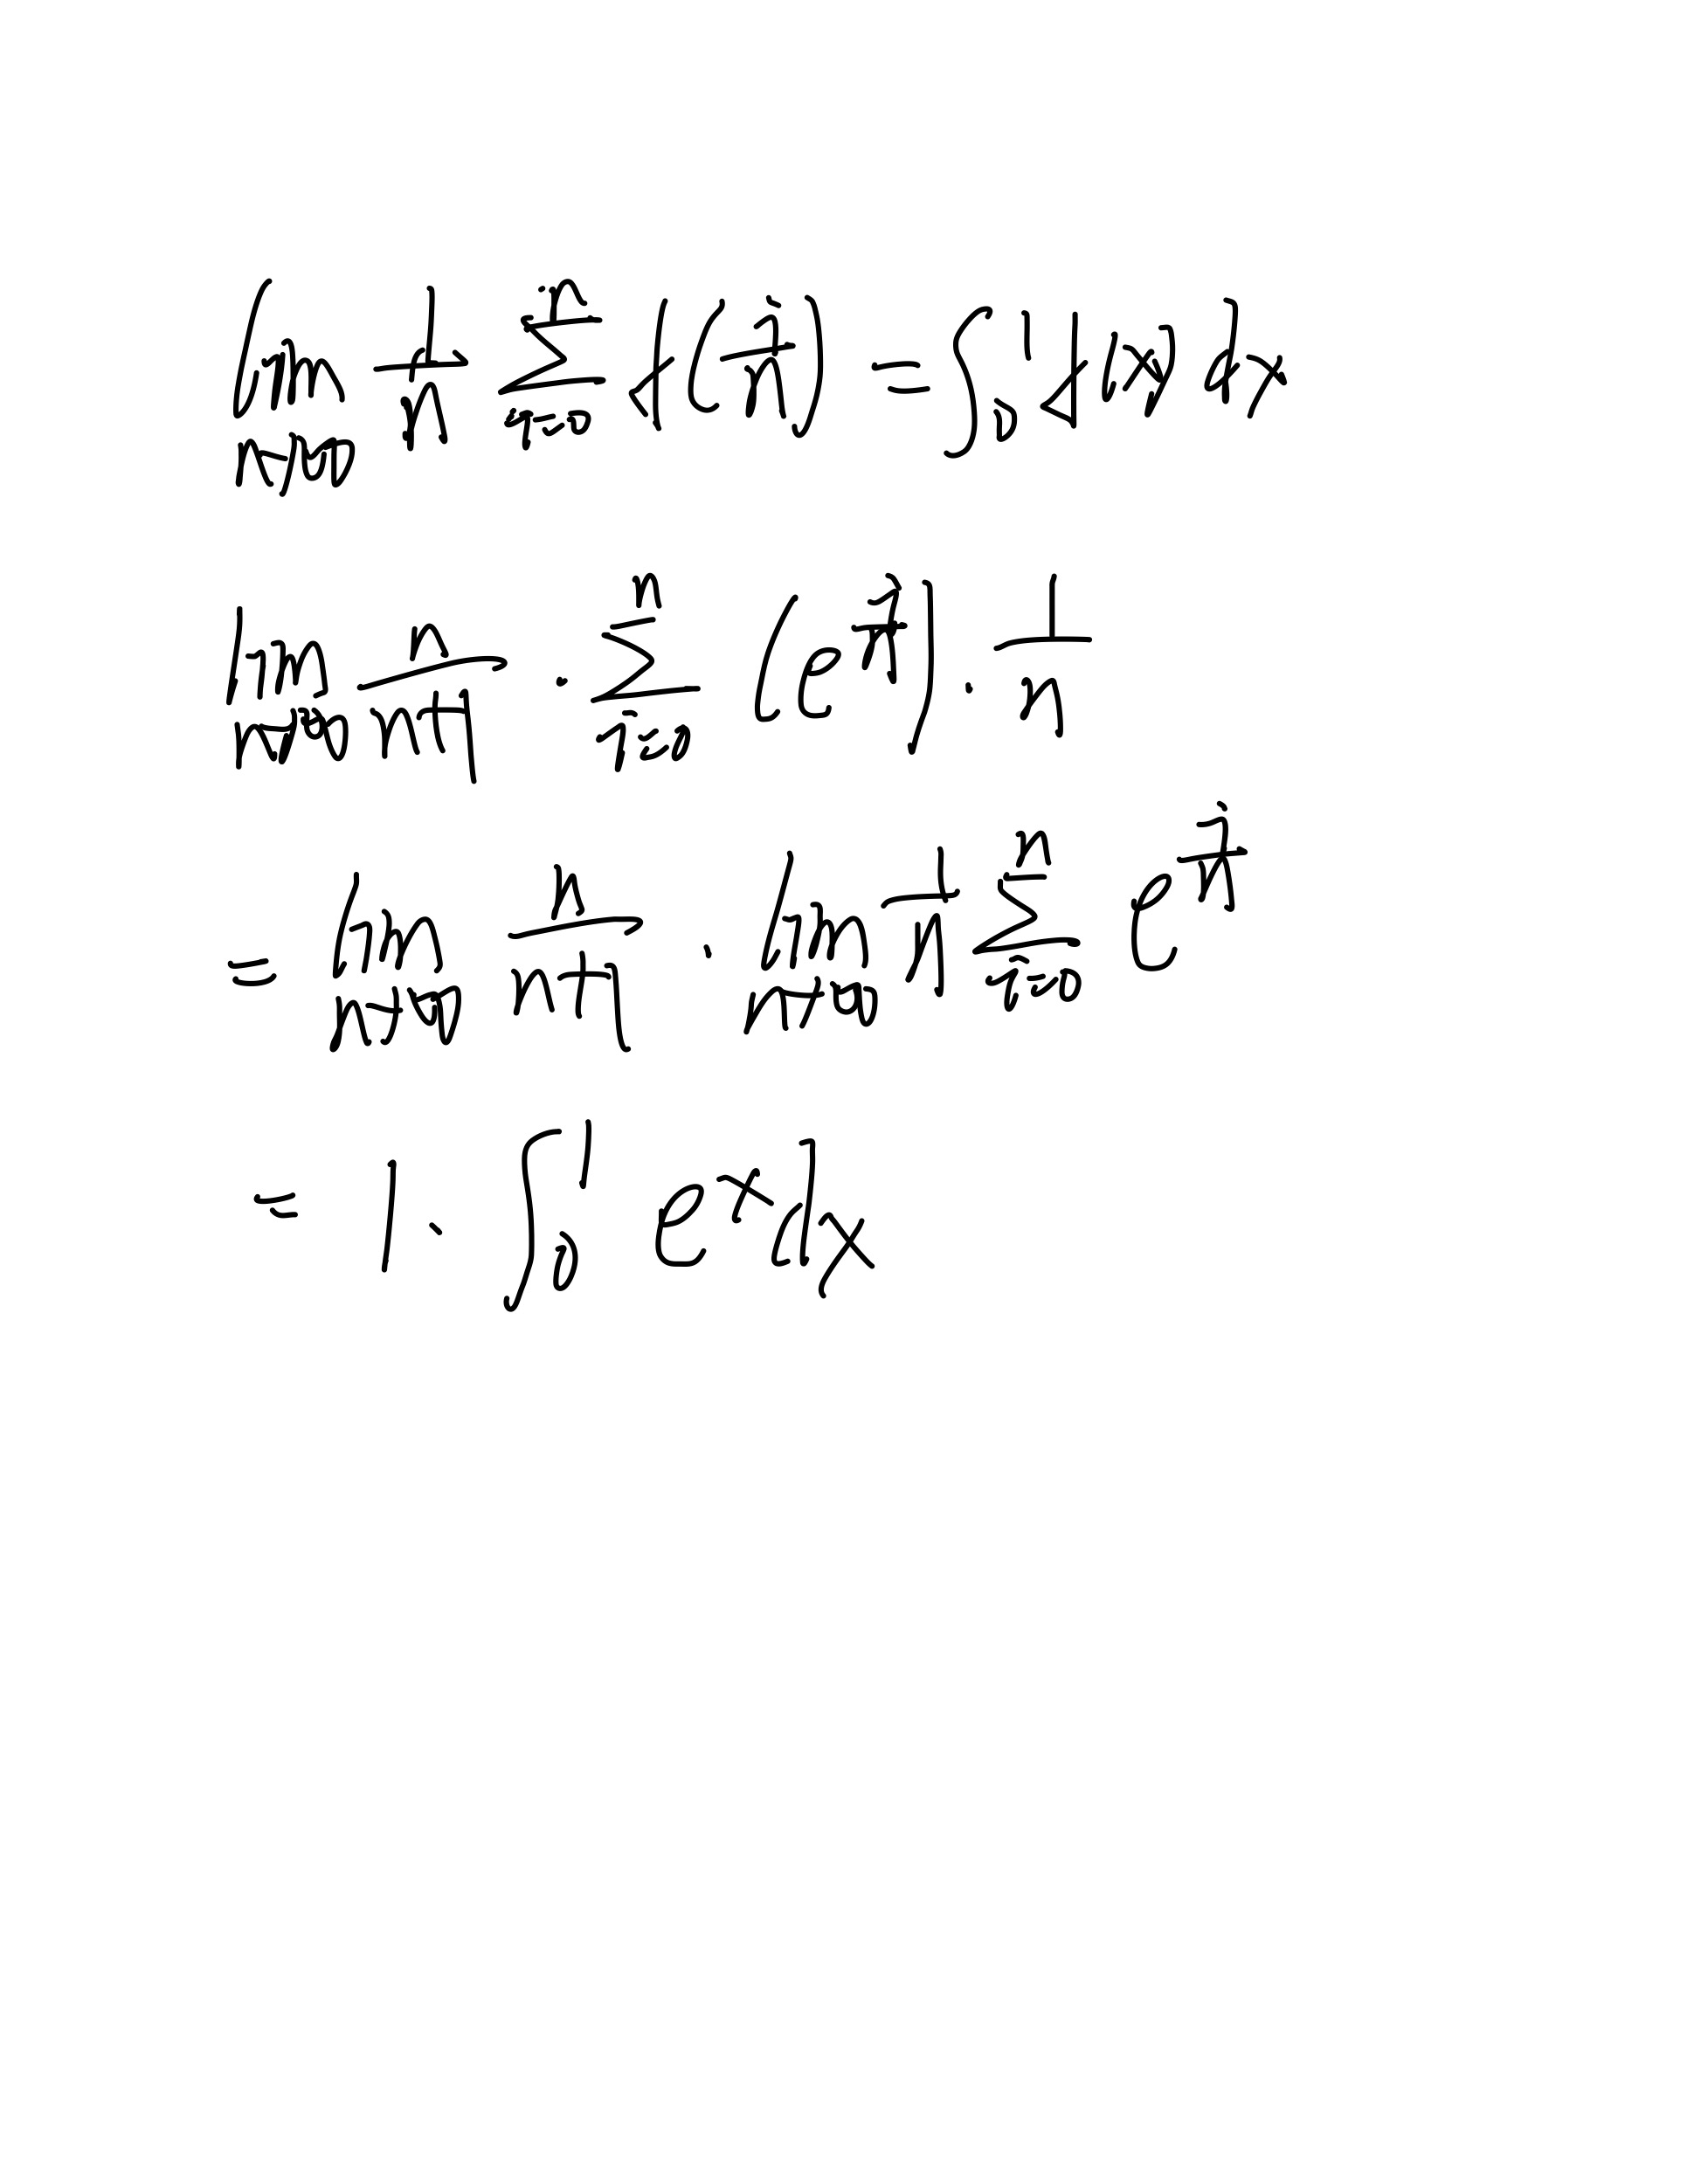 lim n→∞ 1/n ∑ i=0 n f(i/n) = ∫₀¹ f(x) dx
lim n→∞ n/(n+1) · ∑ i=0 n (e^(i/n)) · 1/n
= lim n→∞ n/(n+1) · lim n→∞ 1/n ∑ i=0 n e^(i/n)
= 1 · ∫₀¹ e^x dx